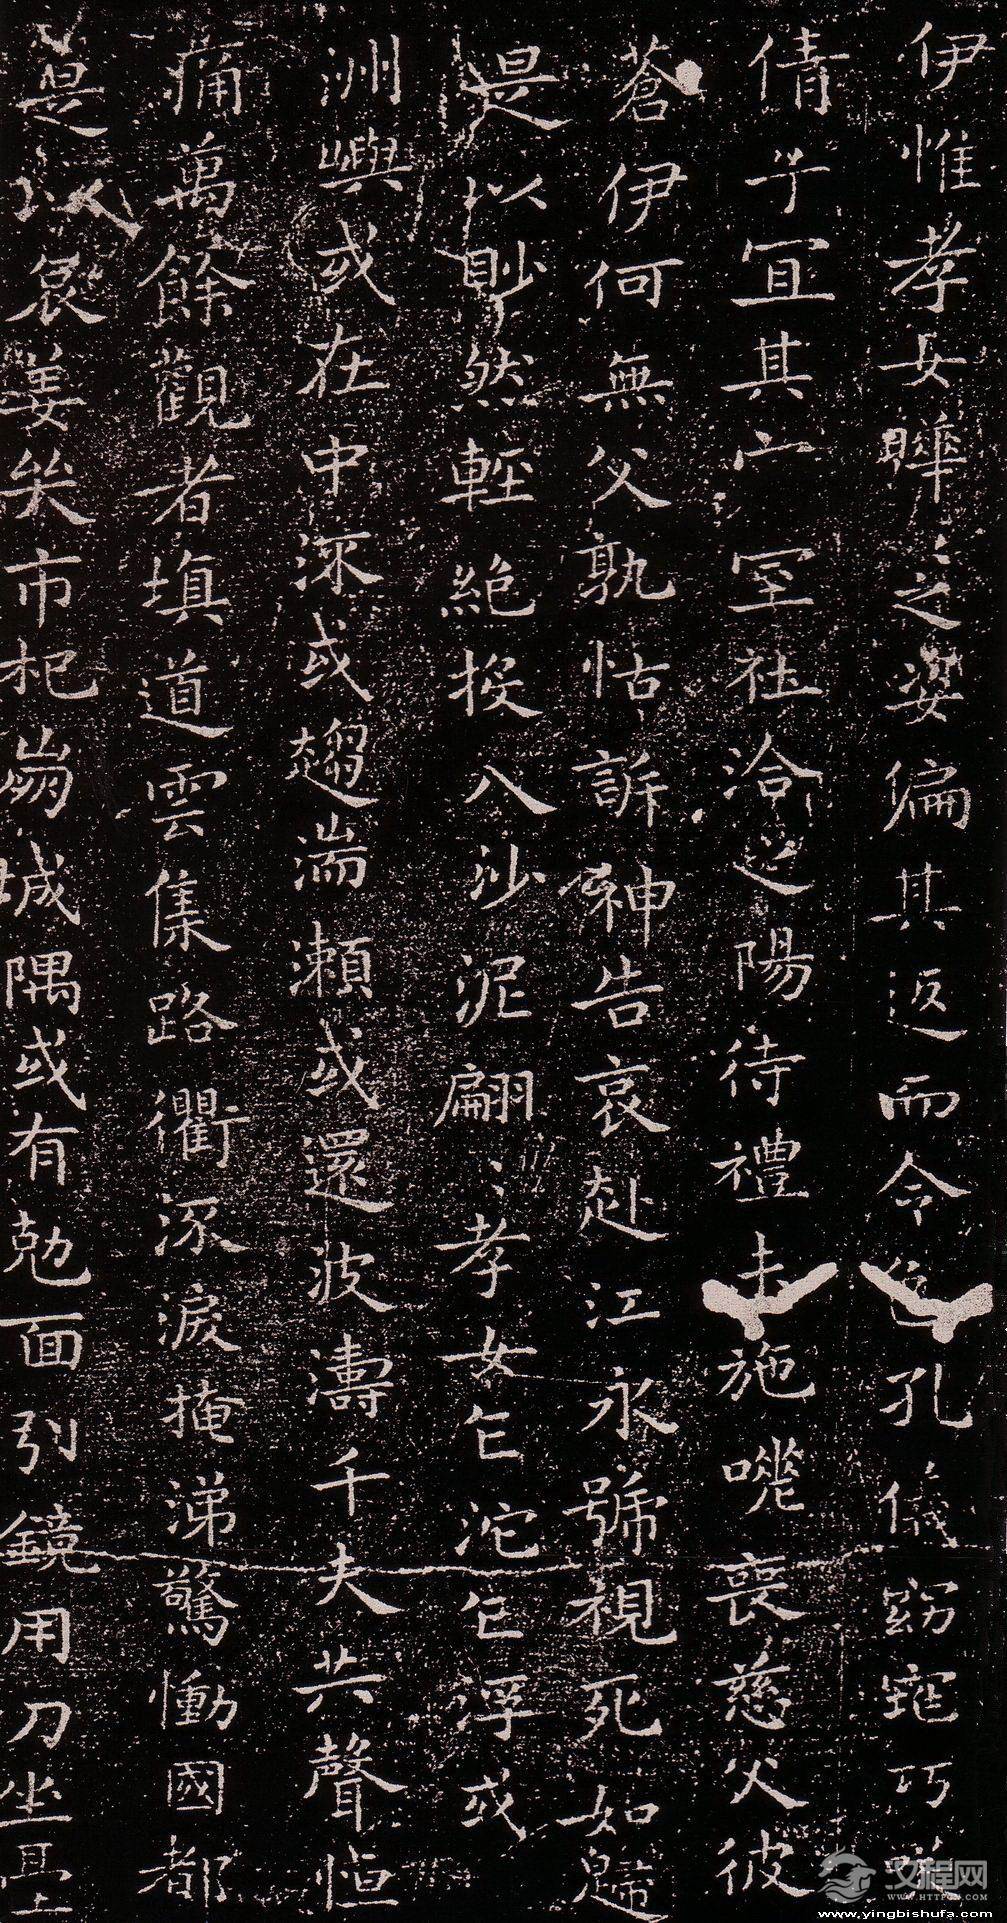 伊惟孝女曄〻之姿偏其返而令色孔儀窈窕巧笑
倩兮宜其家室在洽之陽待禮未施嗟喪慈父彼
蒼伊何無父孰怙訴神告哀赴江永號視死如歸
是以眇然輕絕投入沙泥翩〻孝女乍沈乍浮或
洲嶼或在中流或趨湍瀨或還波濤千夫失聲悼
痛萬餘觀者填道雲集路衢流淚掩涕驚慟國都
是以哀姜哭市杞崩城隅或有剋面引鏡用刀坐臺
汉程网
WWW.HTTPCN.COM
www.yingbishufa.com